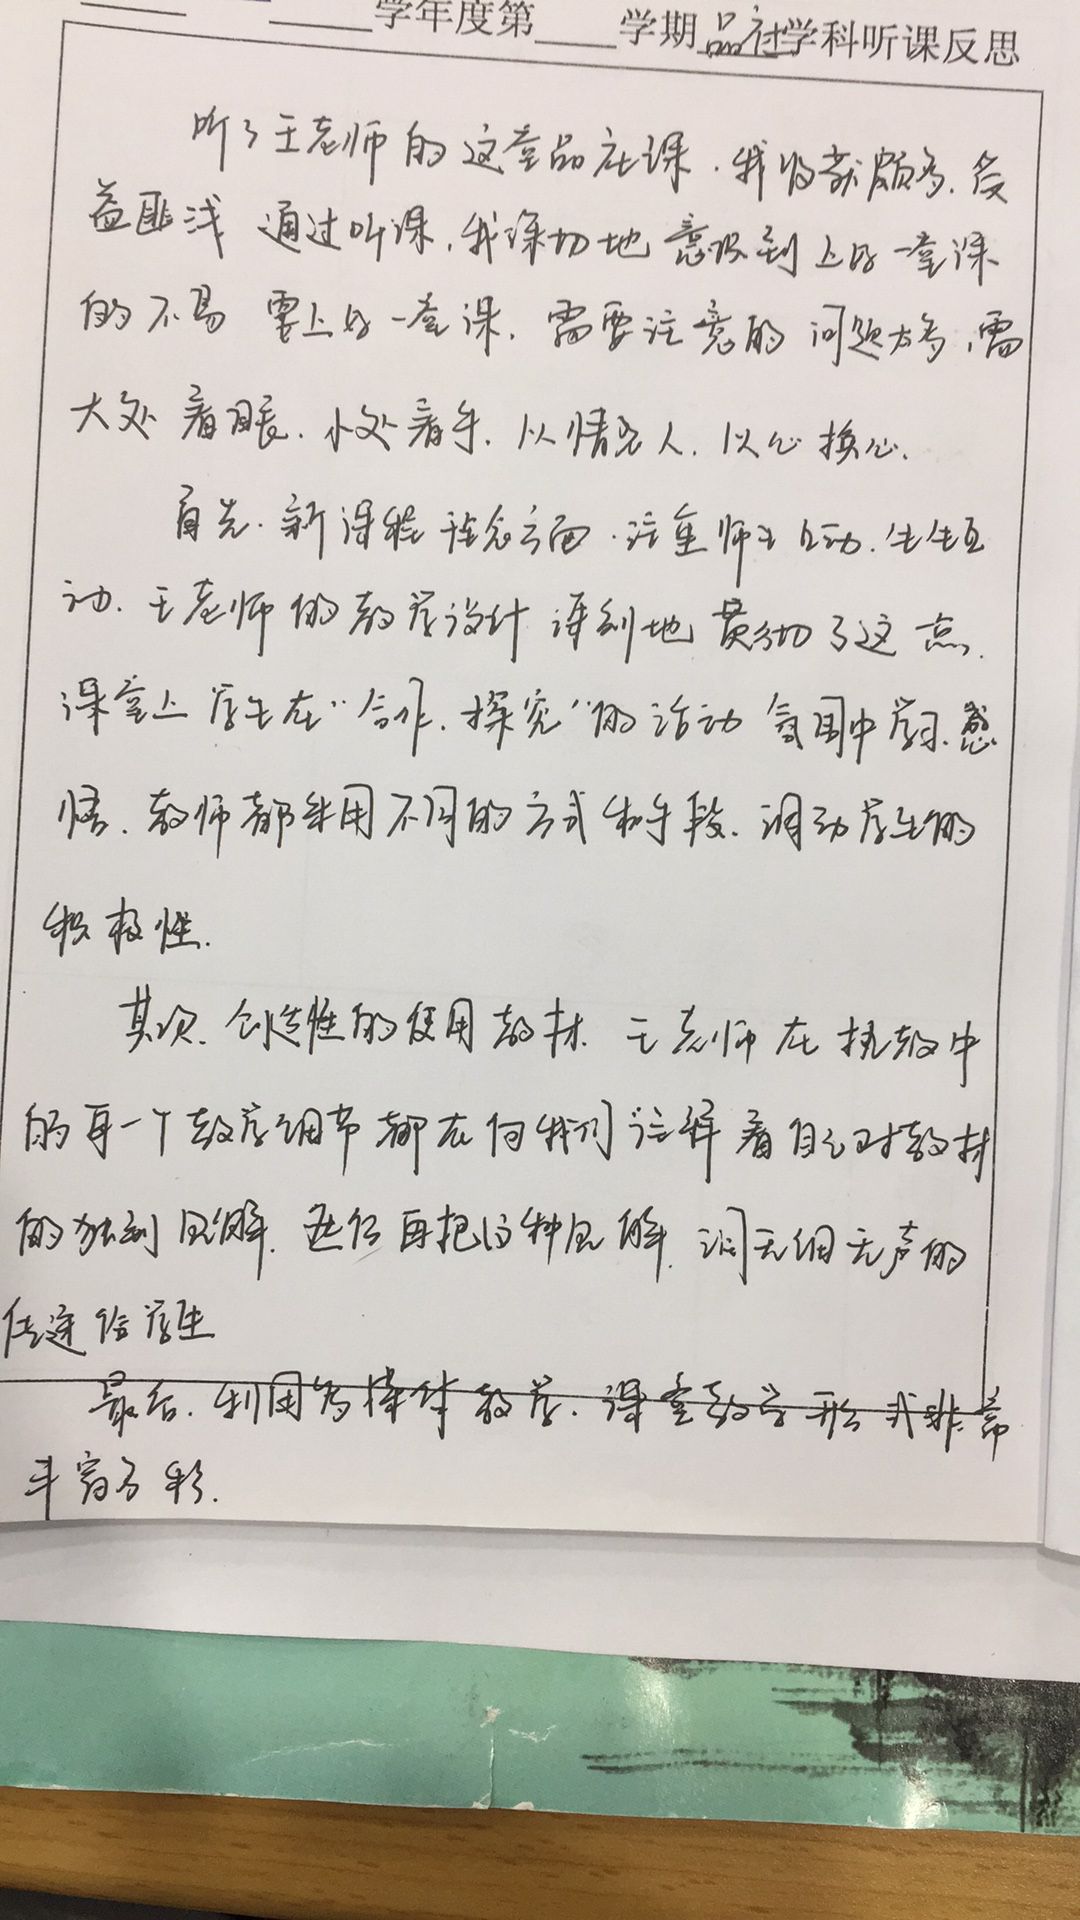 学年度第 学期品社学科听课反思
听了王老师的这堂品社课，我收获颇多，受
益匪浅 通过听课，我深切地意识到上好一堂课
的不易 要上好一堂课，需要注意的问题太多，需
大处着眼，小处着手，以情感人，以心换心。
首先，新课程理念方面，注重师生互动，生生互
动，王老师的教学设计 深刻地贯彻了这点，
课堂上学生在“合作，探究”的活动氛围中学习、感
悟，教师都采用不同的方式和手段，调动学生的
积极性。
其次，创造性的使用教材，王老师在执教中
的每一个教学细节都在向我们注释着自己对教材
的独到见解，然后再把这种见解，润无细无声的
传递给学生
最后，利用多媒体教学，课堂教学形式非常
丰富多彩。